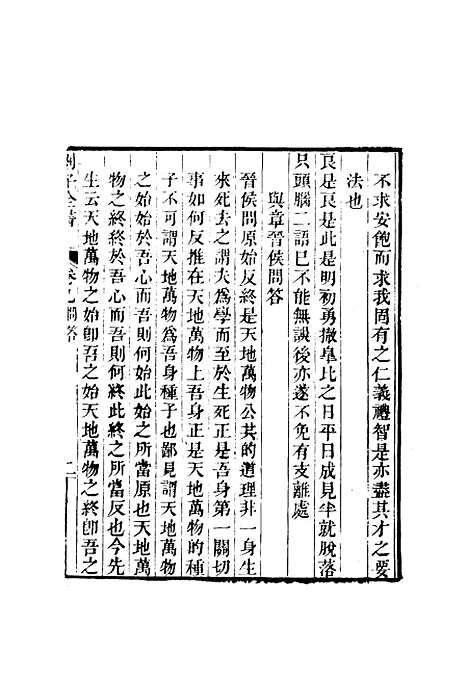 不求安飽而求我固有之仁義禮智是亦盡其才之要
法也
良是良是此是明初勇撤臯比之日平日成見半就脫落
只頭腦二語已不能無誤後亦遂不免有支離處
與章晉侯問答
晉侯問原始反終是天地萬物公共的道理非一身生
來死去之謂夫為學而至於生死正是吾身第一關切
事如何反推在天地萬物上吾身正是天地萬物的種
子不可謂天地萬物為吾身種子也鄙見謂天地萬物
之始始於吾心而吾則何始此始之所當原也天地萬
物之終終於吾心而吾則何終此終之所當反也今先
生云天地萬物之始卽吾之始天地萬物之終卽吾之
子全書
卷九問答
二